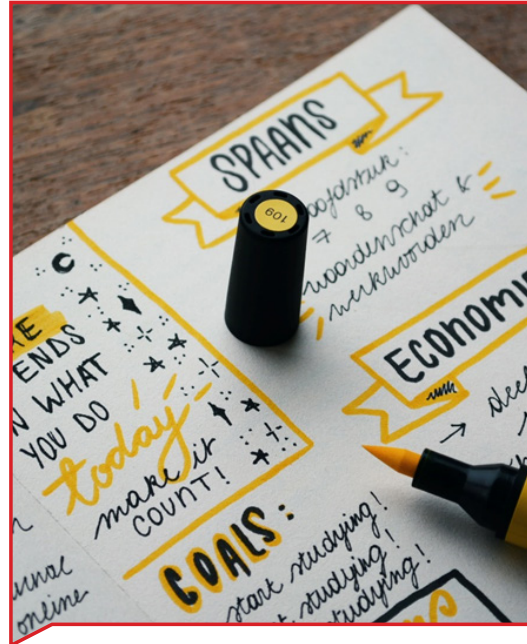 SPAANS
109
7 8 9
woordenschat &
werkwoorden
ECONOMI
ENDS
WHAT
YOU DO
today
make it
COUNT!
GOALS:
start studying!
studying!
studying!
online